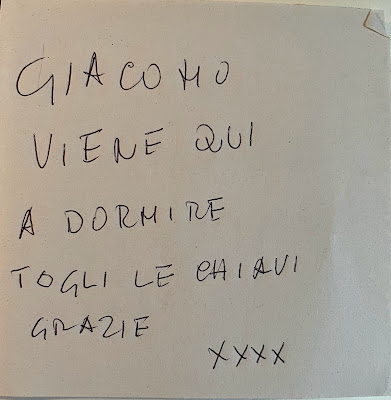 GIACOMO
VIENE QUI
A DORMIRE
TOGLI LE CHIAVI
GRAZIE
XXXX